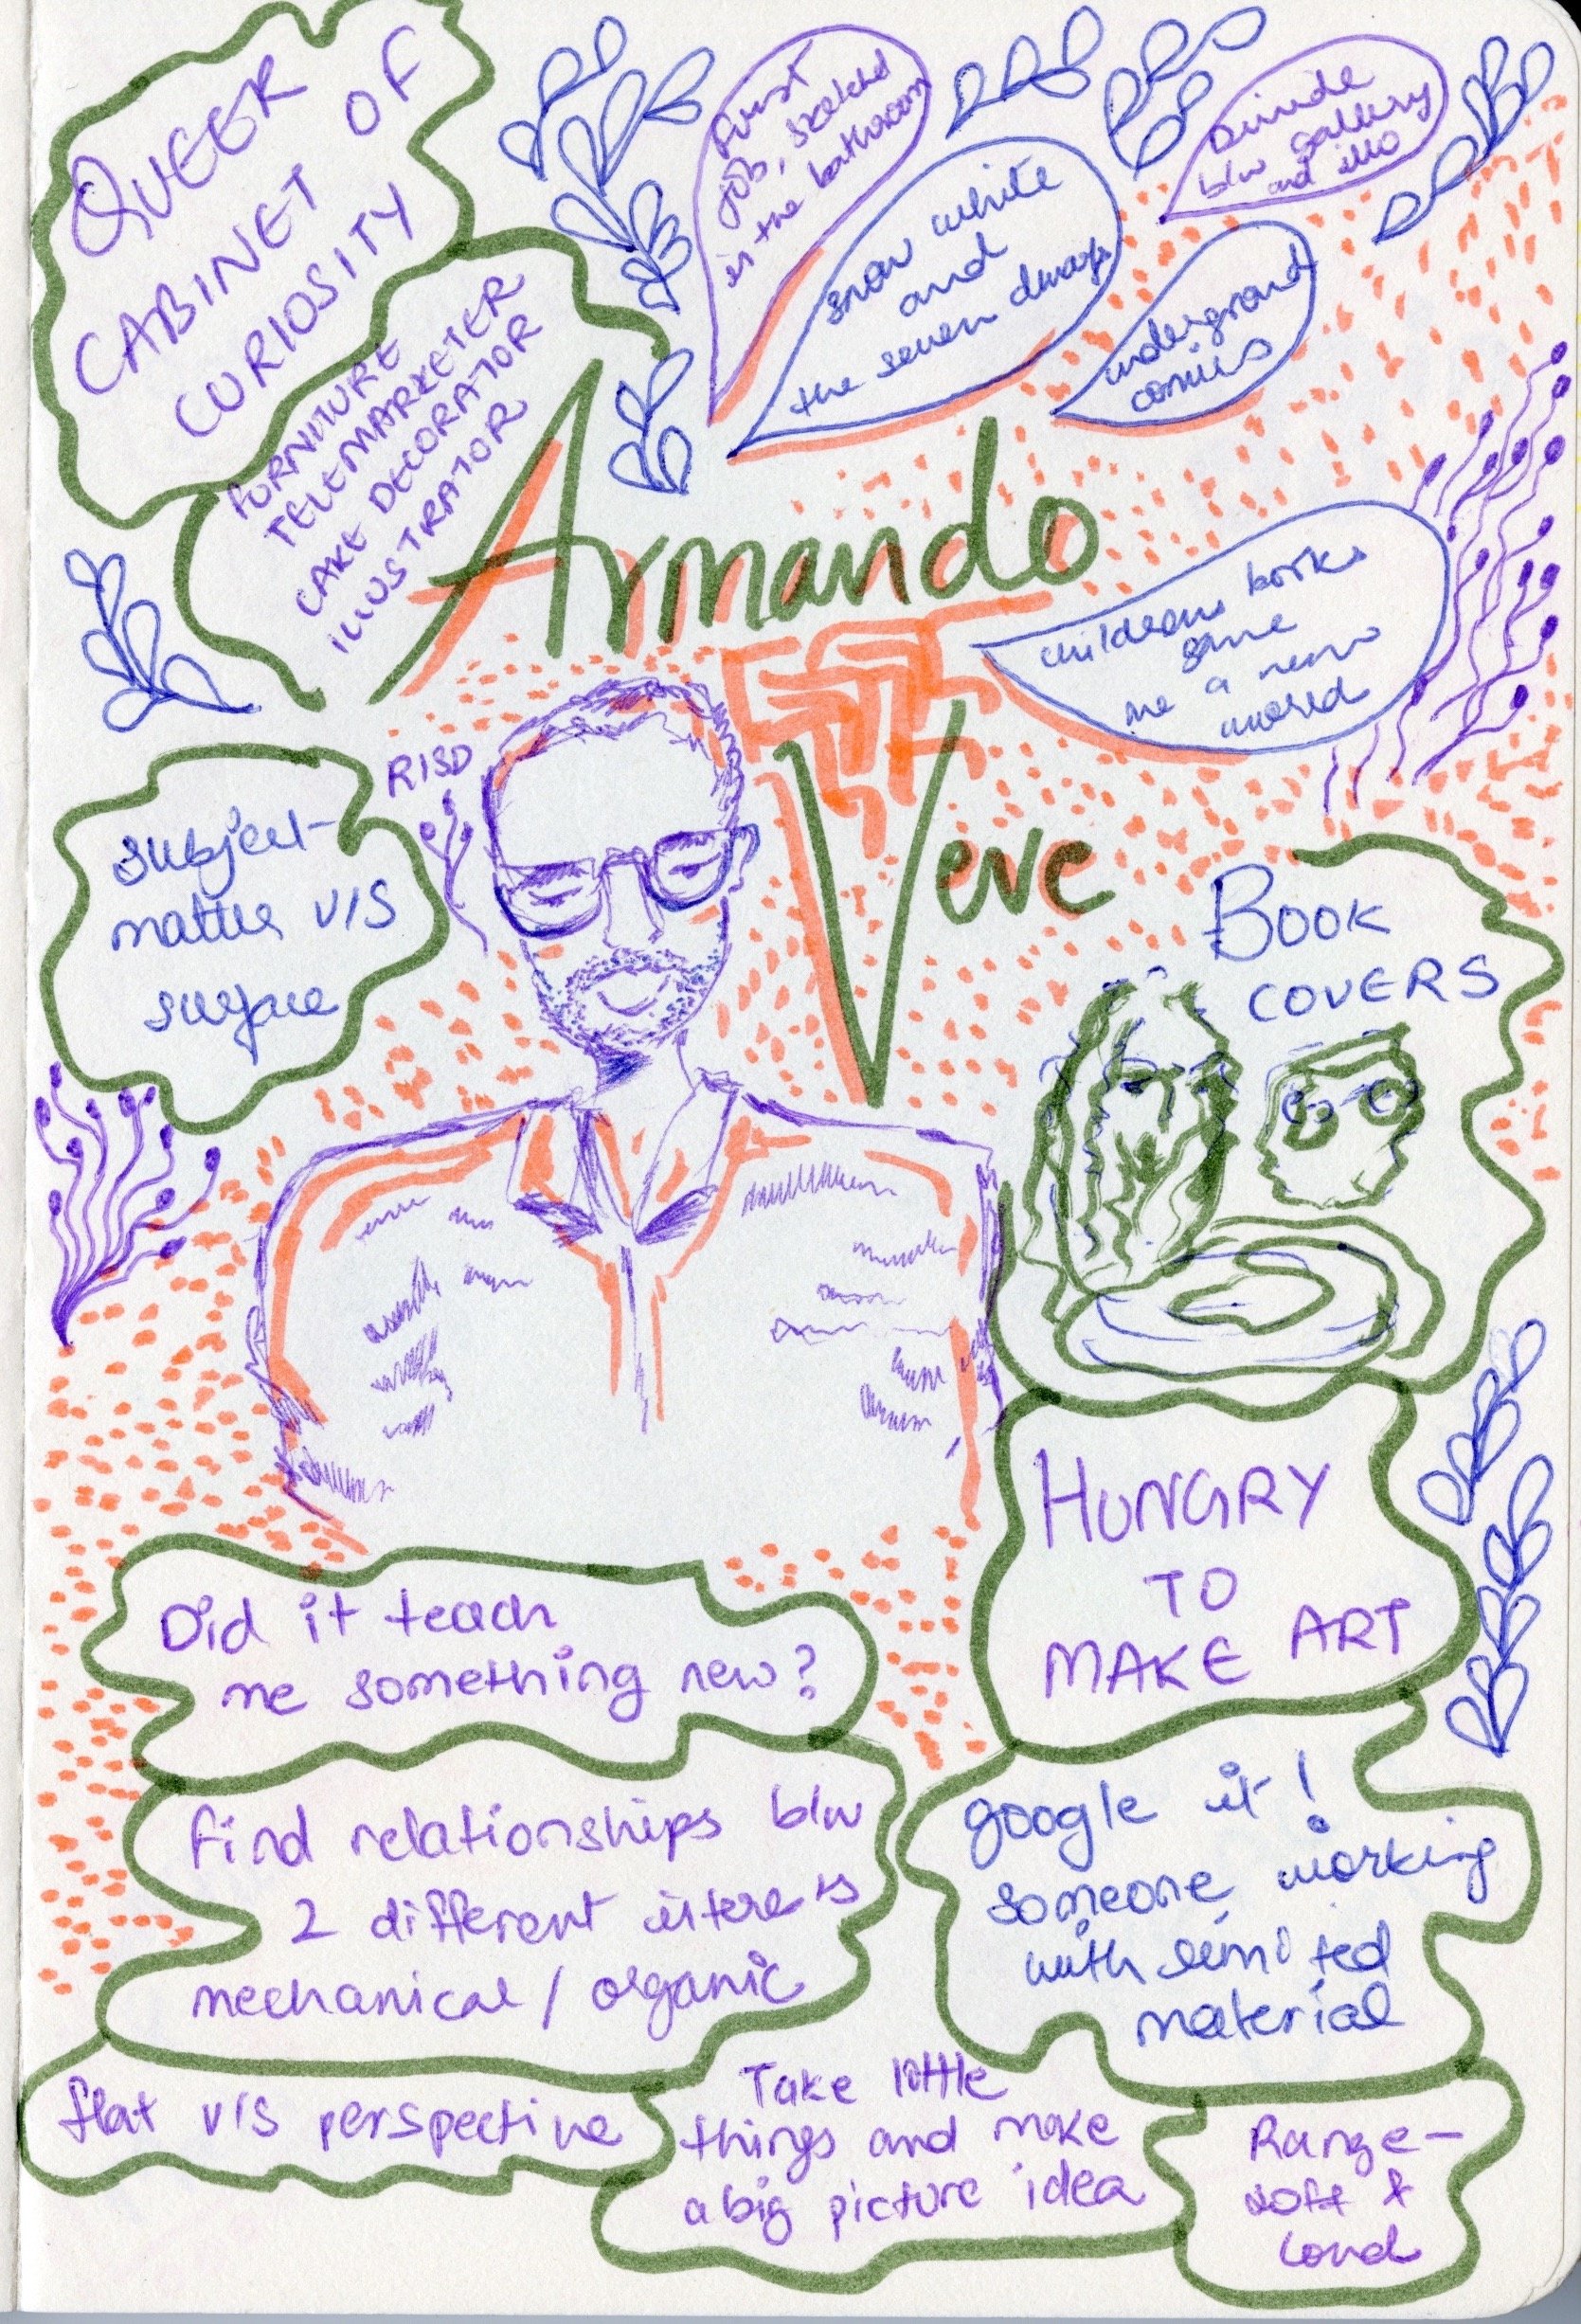 QUEER
CABINET OF
CURIOSITY
FURNITURE
TELEMARKETER
CAKE DECORATOR
ILLUSTRATOR
first
job, sketched
in the bathroom
snow white
and
the seven dwarfs
Divide
b/w gallery
and illo
underground
comics
Armando
Veve
childrens books
gave
me a new
world
RISD
subject-
matter v/s
surface
BOOK
COVERS
HUNGRY
TO
MAKE ART
Did it teach
me something new?
find relationships b/w
2 different interests
mechanical / organic
google it!
someone working
with limited
material
flat v/s perspective
Take little
things and make
a big picture idea
Range -
soft &
loud